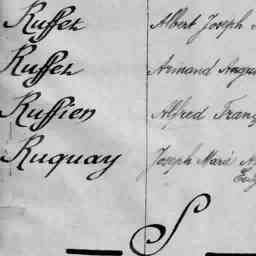 Ruffez Albert Joseph
Ruffez Armand
Ruffien Alfred
Ruquay Joseph Marie
S